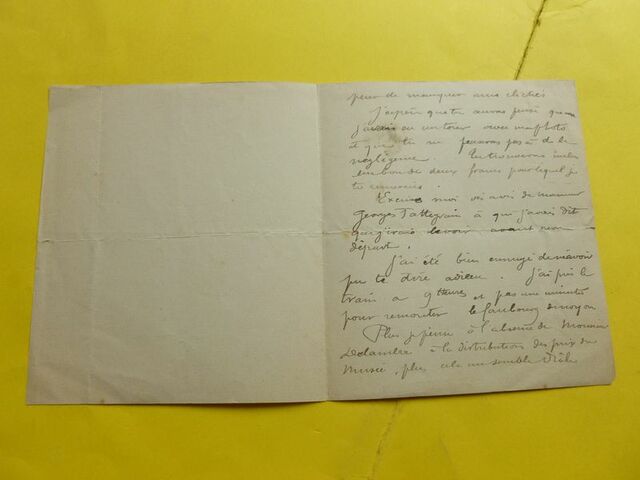 peur de manquer mes clichés
J'espère que tu auras pensé que
j'avais eu un torer avec ma photo
et que tu ne penseras pas à de la
négligence. Tu trouveras
un bon de deux francs pour lequel je
te remercie.
Excuse moi vis avis de monsieur
Georges Tattegrain à qui j'avais dit
que j'irais le voir avant mon
départ.
J'ai été bien ennuyé de n'avoir
pu te dire adieu. J'ai pris le
train a 9 heures et pas une minute
pour remonter le faubourg de noyon
Plus je pense à l'absence de Monsieur
Delambre à la distribution des prix du
Musée, plus cela me semble drôle